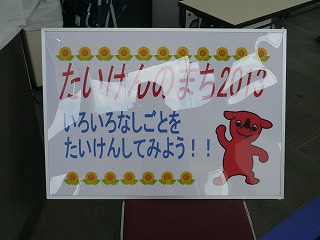 たいけんのまち2013
いろいろなしごとを
たいけんしてみよう！！